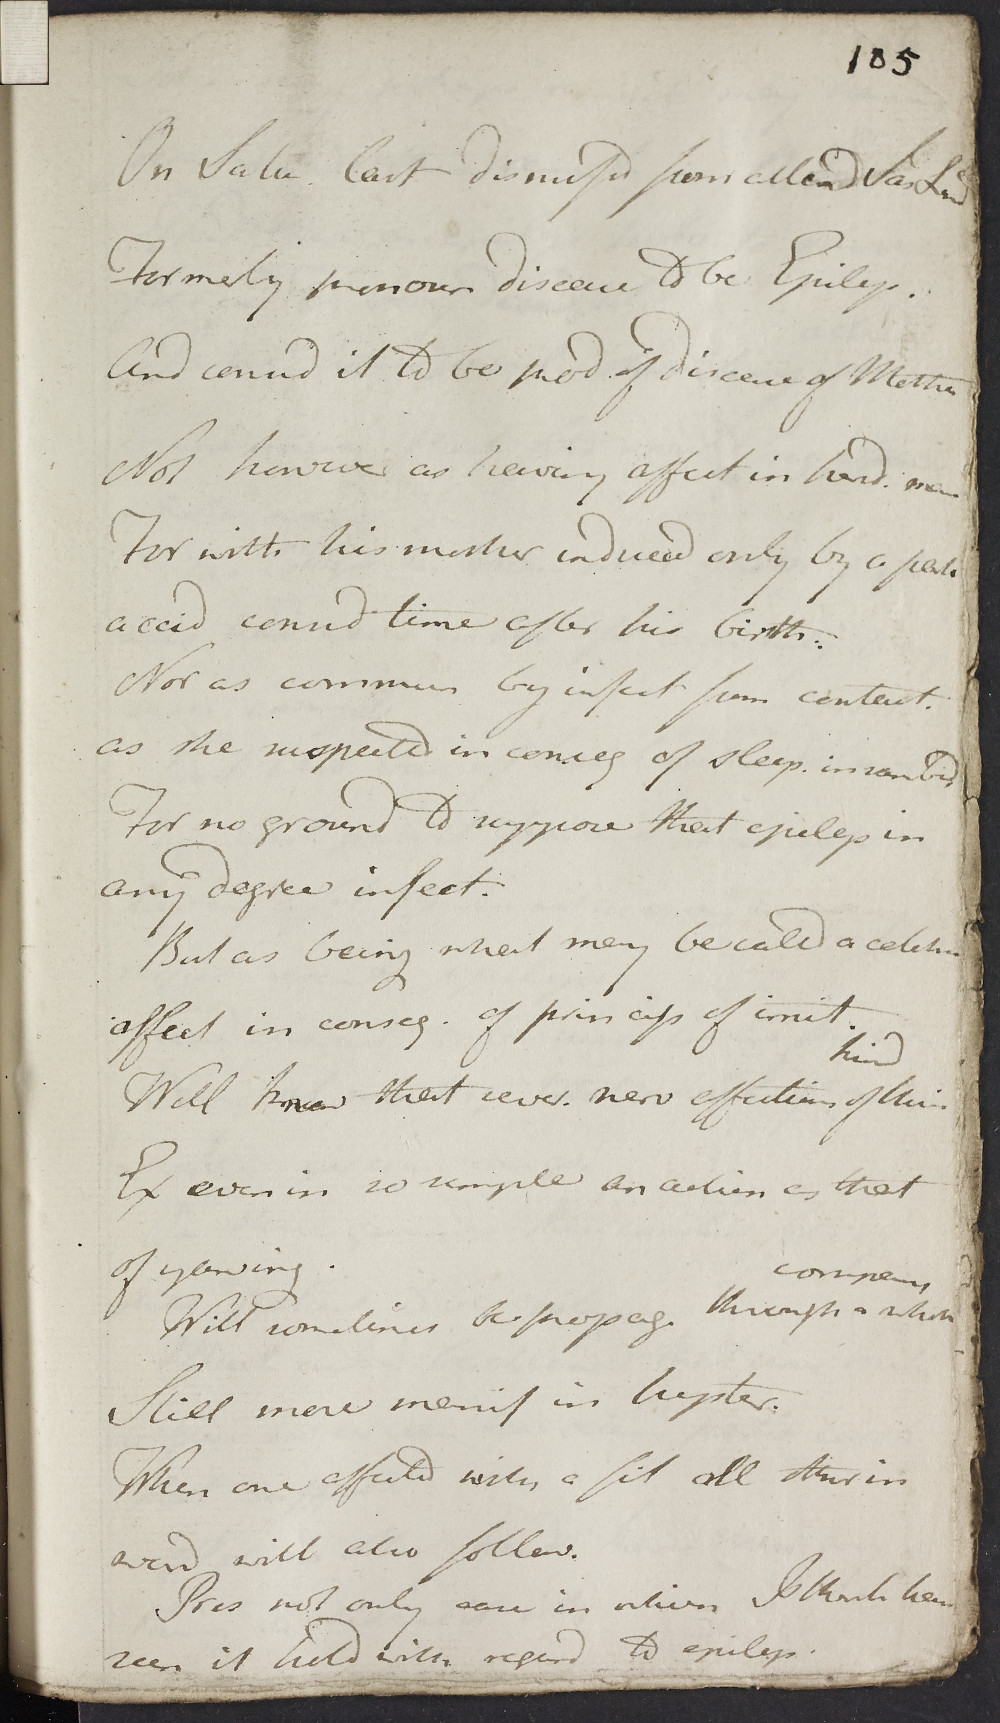 185
On Satu. last dismissd from attend Jas
Formerly pronoun disease to be Epilep.
And consid it to be prod. of disease of Mother
Not however as having affect in hered. man
For with his mother induced only by a parti
accid consid time after his birth.
Nor as commun by infect from contact.
as she suspected in conseq of sleep. in sam bed
For no ground to suppose that epilep in
any degree infect.
But as being what may be called a
affect in conseq. of princip of imit.
kind
Well know that sever. nerv affections of this
Ex even in so simple an action as that
of yawning.
company
Will sometimes be propag. through a whole
Still more manif in hyster.
When one affected with a fit all thos in
ward will also follow.
Pres not only case in which I think have
seen it hold with regard to epilep.